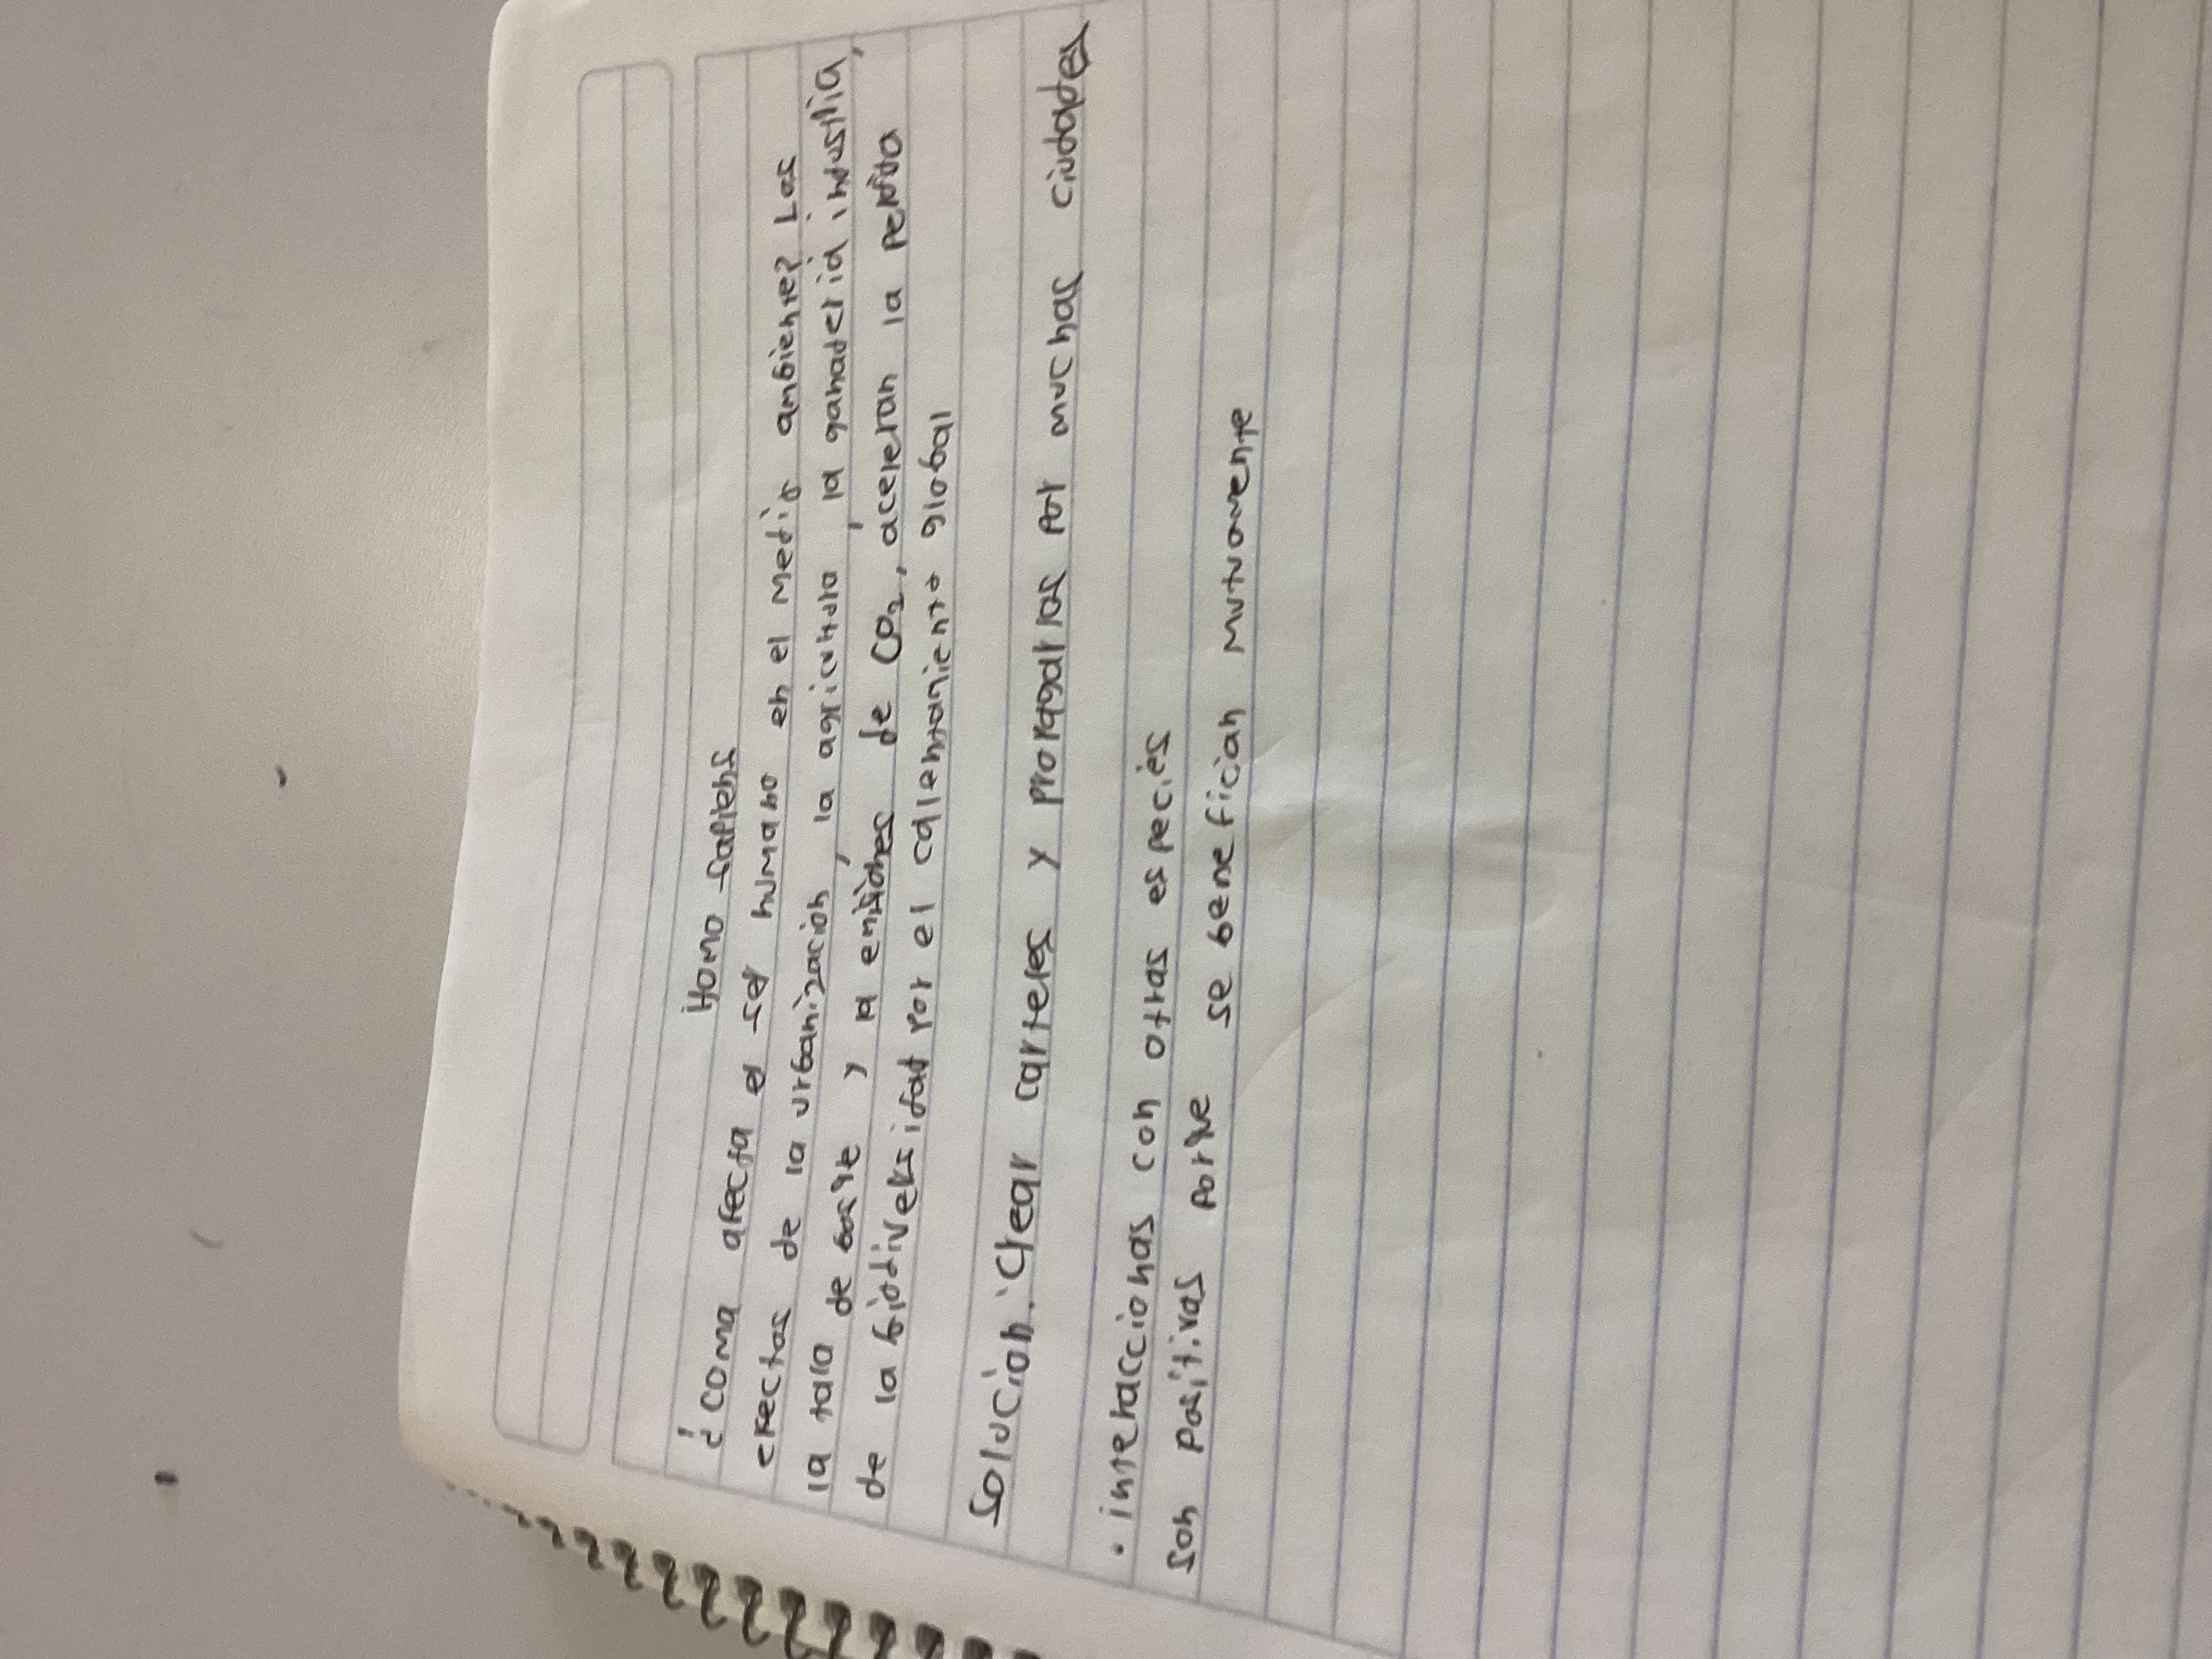 Homo sapiens
¿Coma afecta el ser humano en el medio ambiente? Las
efectos de la urbanización, la agricultura, la ganaderia industria,
la tala de bosqe y la emisiones de CO2, aceleran la perdida
de la biodiversidad por el calentamiento global
Solución: Crear carteles y propagarlos por muchas ciudades
• interaccionas con otras especies
son positivas porqe se benefician mutuamente